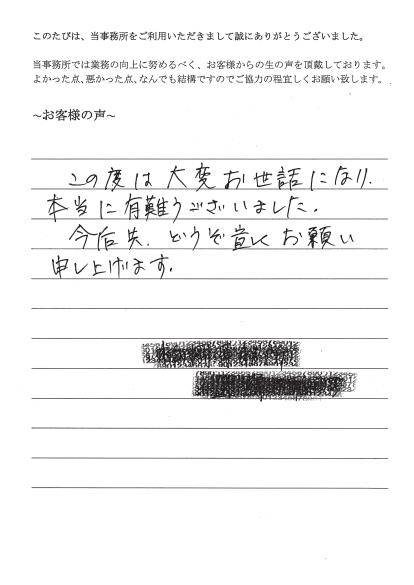 このたびは、当事務所をご利用いただきまして誠にありがとうございました。
当事務所では業務の向上に努めるべく、お客様からの生の声を頂戴しております。
よかった点、悪かった点、なんでも結構ですのでご協力の程宜しくお願い致します。
~お客様の声~
この度は大変お世話になり、
本当に有難うございました。
今后共、どうぞ宜しくお願い
申し上げます。